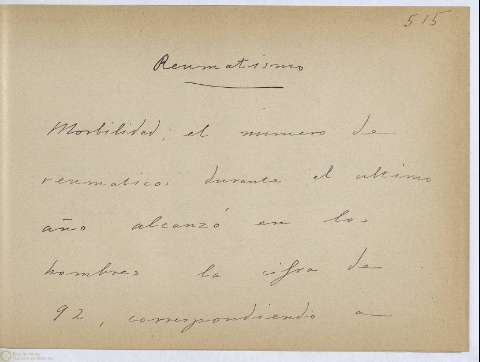 515
Reumatismo
Morbilidad; el número de
reumaticos durante el ultimo
año alcanzó en los
hombres la cifra de
92, correspondiendo a